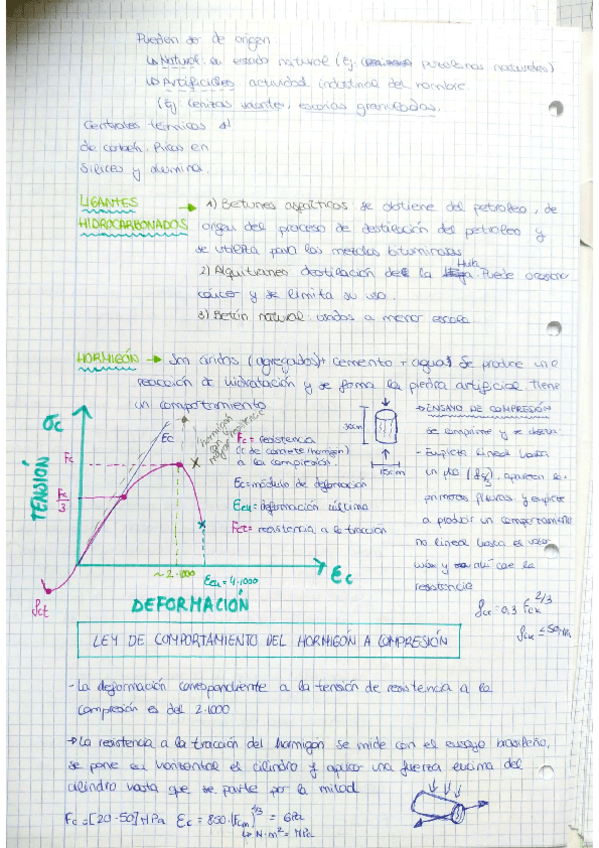 Pueden ser de origen
↳ Natural: en estado natural (Ej. puzolanas naturales)
↳ Artificiales: actividad industrial del hombre.
(Ej. Cenizas volantes, escorias granuladas.
Centrales térmicas
de carbón. Ricas en
sílices y alumina.
LIGANTES HIDROCARBONADOS → 1) Betunes asfálticos: se obtiene del petroleo, de
origen del proceso de destilación del petroleo y
se utiliza para las mezclas bituminosas
2) Alquitranes destilación de la Hulla. Puede ocasionar
cáncer y se limita su uso.
3) Betún natural: usados a menor escala
HORMIGÓN → Son áridos (agregados) + cemento + agua. Se produce una
reacción de hidratación y se forma la piedra artificial. Tiene
un comportamiento
σc
TENSIÓN
Fc
Fc/3
Ec
hormigon con mayor resistencia
fct
~2·1000
Ecu = 4·1000
Ec
DEFORMACIÓN
Fc = resistencia
(c de concrete/hormigón)
a la compresión.
Ec = módulo de deformación
Ecu = deformación última
Fct = resistencia a la tracción
30cm
15cm
→ ENSAYO DE COMPRESIÓN
se comprime y se
- Empieza lineal hasta
un pto, aparecen las
primeras fisuras, y empieza
a producir un comportamiento
no lineal hasta el valor
y ahí cae la
resistencia
fct = 0,3 Fck^2/3
fck ≤ 50
LEY DE COMPORTAMIENTO DEL HORMIGÓN A COMPRESIÓN
- La deformación correspondiente a la tensión de resistencia a la
compresión es del 2·1000
→ La resistencia a la tracción del hormigon se mide con el ensayo brasileño,
se pone en horizontal el cilindro y aplicar una fuerza encima del
cilindro hasta que se parte por la mitad.
Fc = [20-50] MPa Ec = 8500·(Fcm)^1/3 = GPa
↳ N·m² = MPa